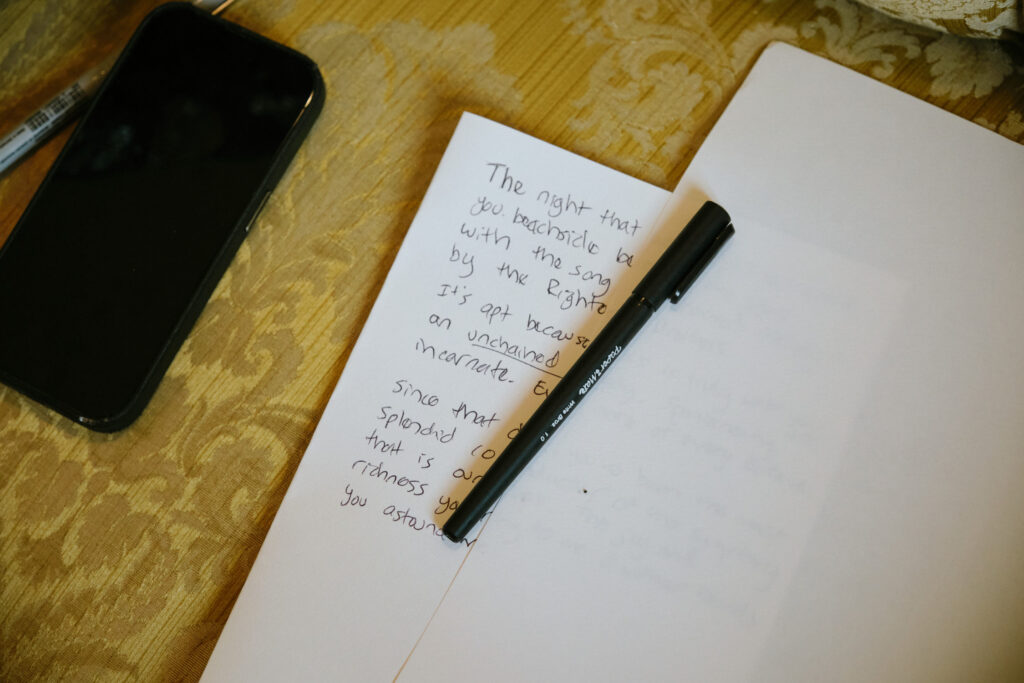 The night that
you beachside be
with the song
by the Righte
It's apt because
an unchained
incarnate. Ev
since that d
splendid co
that is our
richness yo
you astound m
Paper Mate